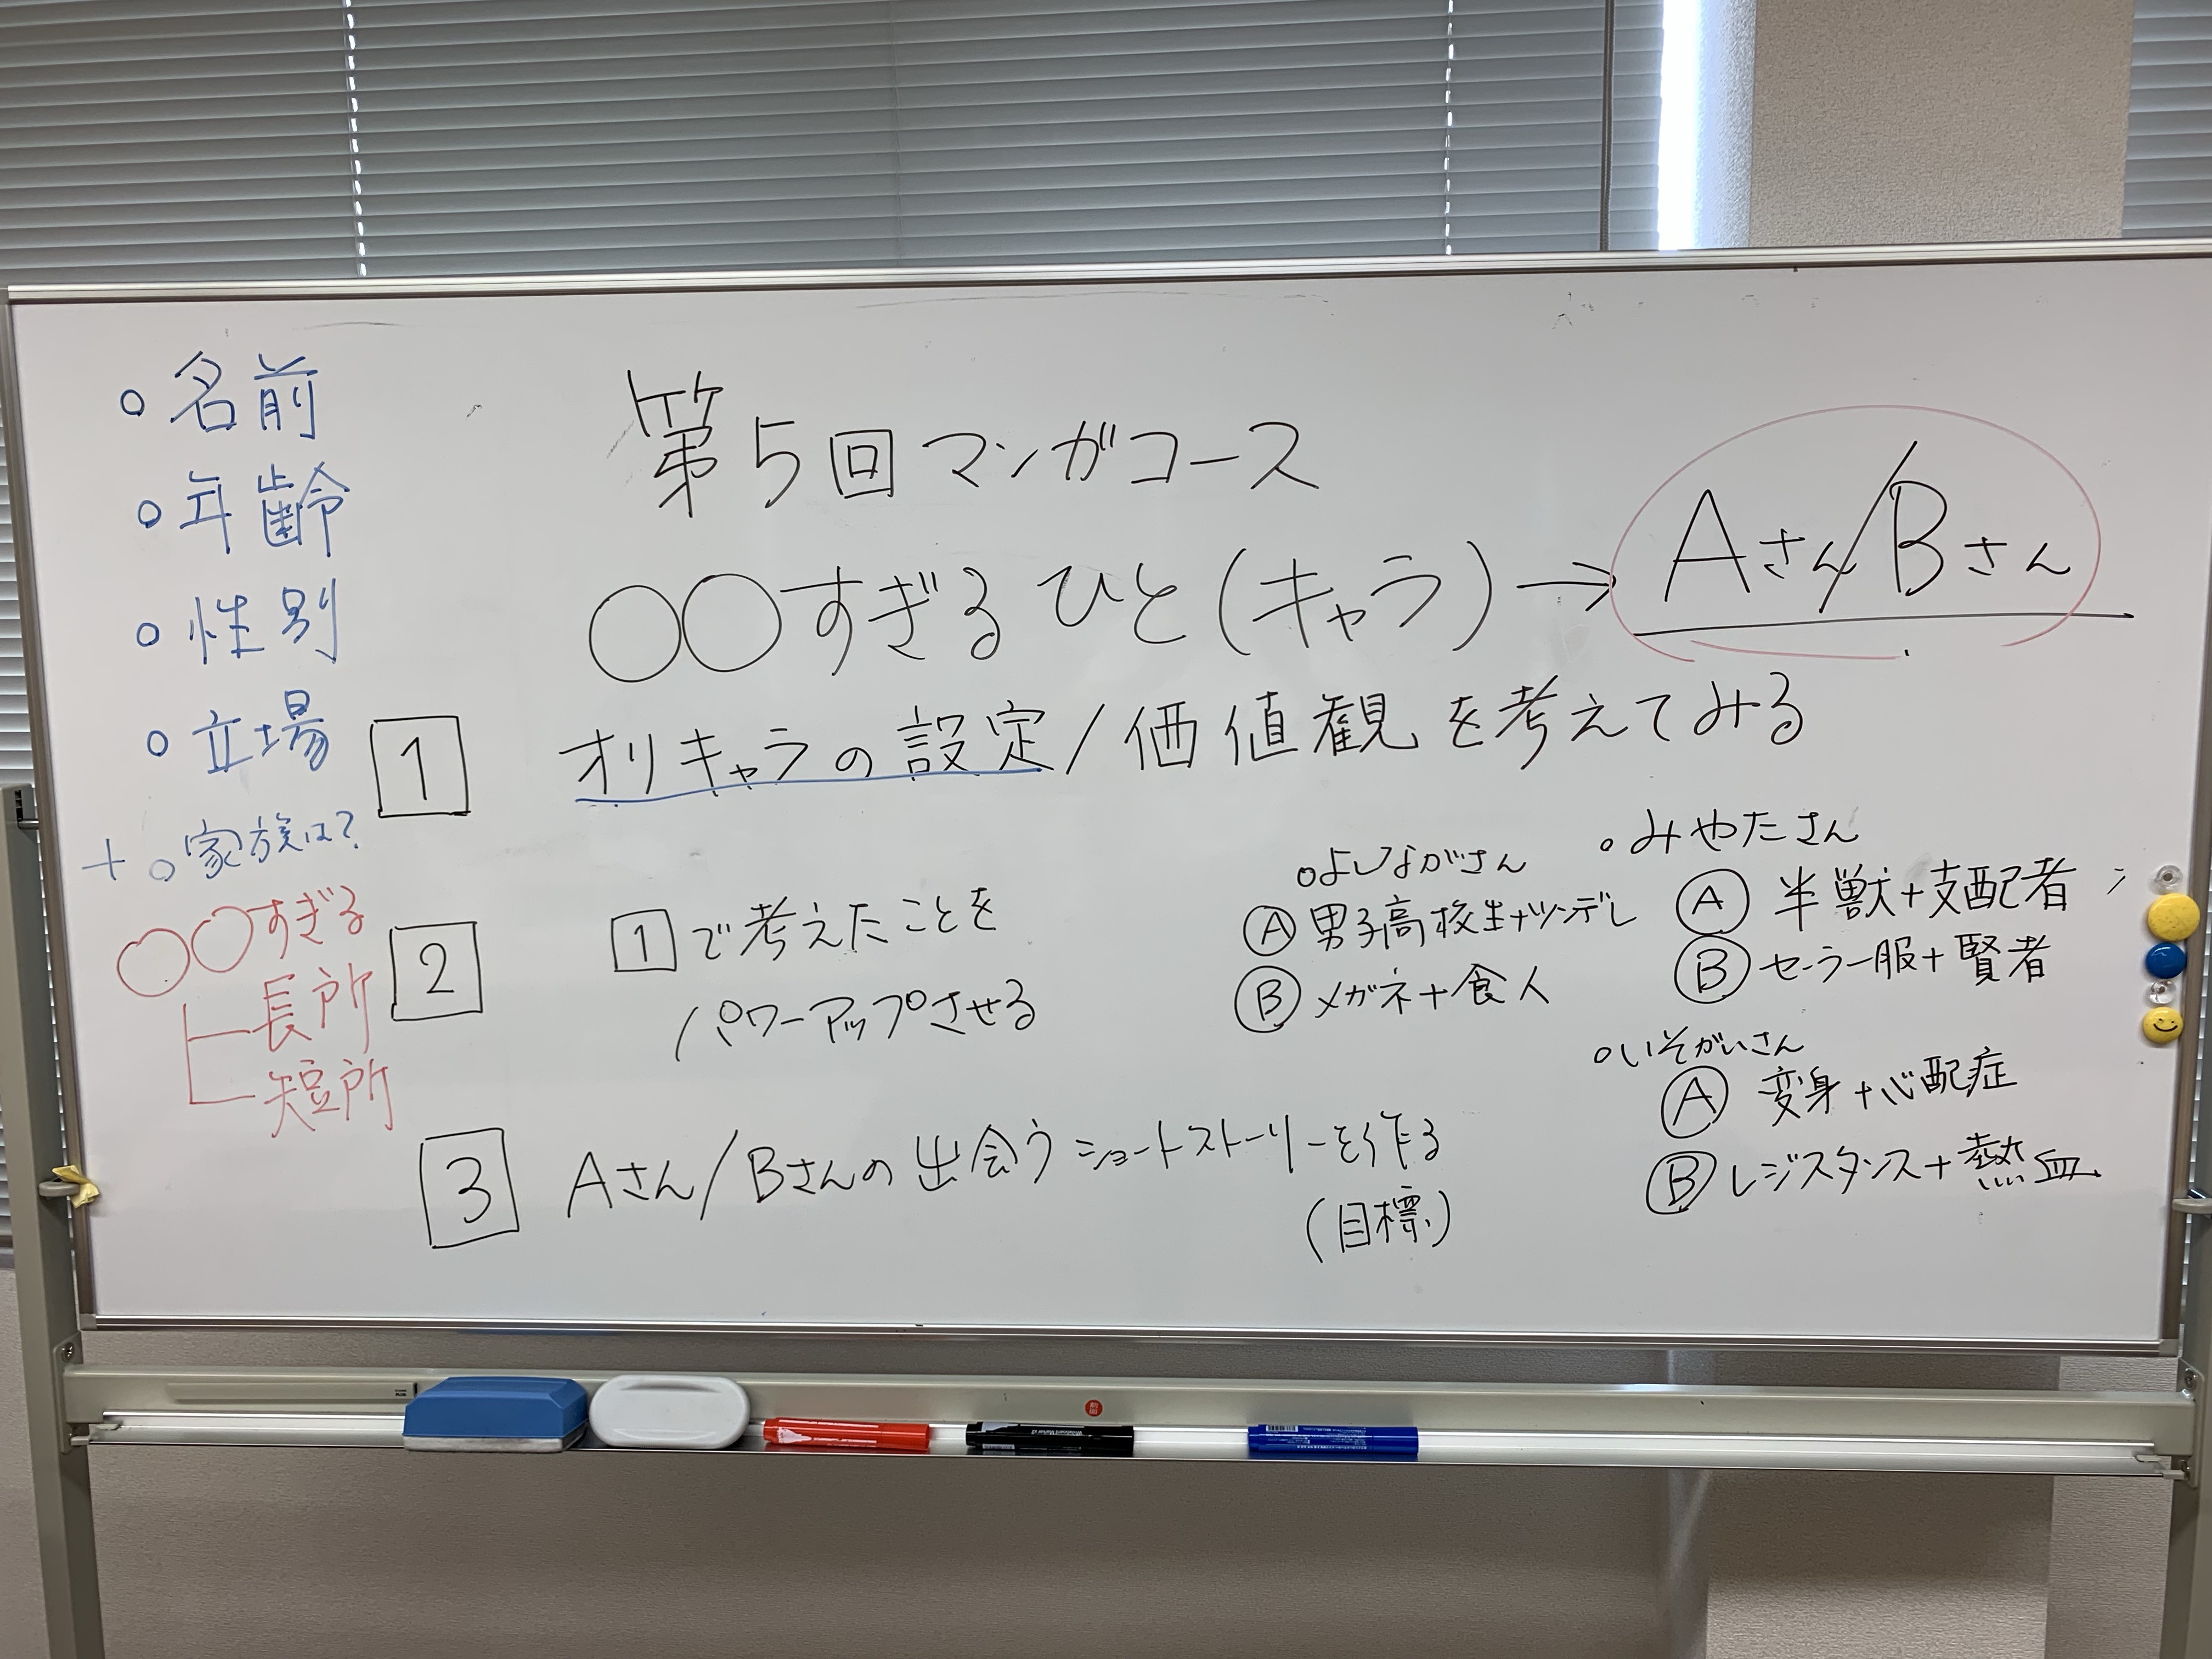 ○名前
○年齢
○性別
○立場
+○家族は?
○○すぎる
長所
短所
第5回マンガコース
○○すぎるひと(キャラ)→Aさん/Bさん
1 オリキャラの設定/価値観を考えてみる
2 1で考えたことを
パワーアップさせる
3 Aさん/Bさんの出会うショートストーリーを作る
(目標)
○よしながさん
Ⓐ男子高校生+ツンデレ
Ⓑメガネ+食人
○みやたさん
Ⓐ半獣+支配者
Ⓑセーラー服+賢者
○いそがいさん
Ⓐ変身+心配症
Ⓑレジスタンス+熱血